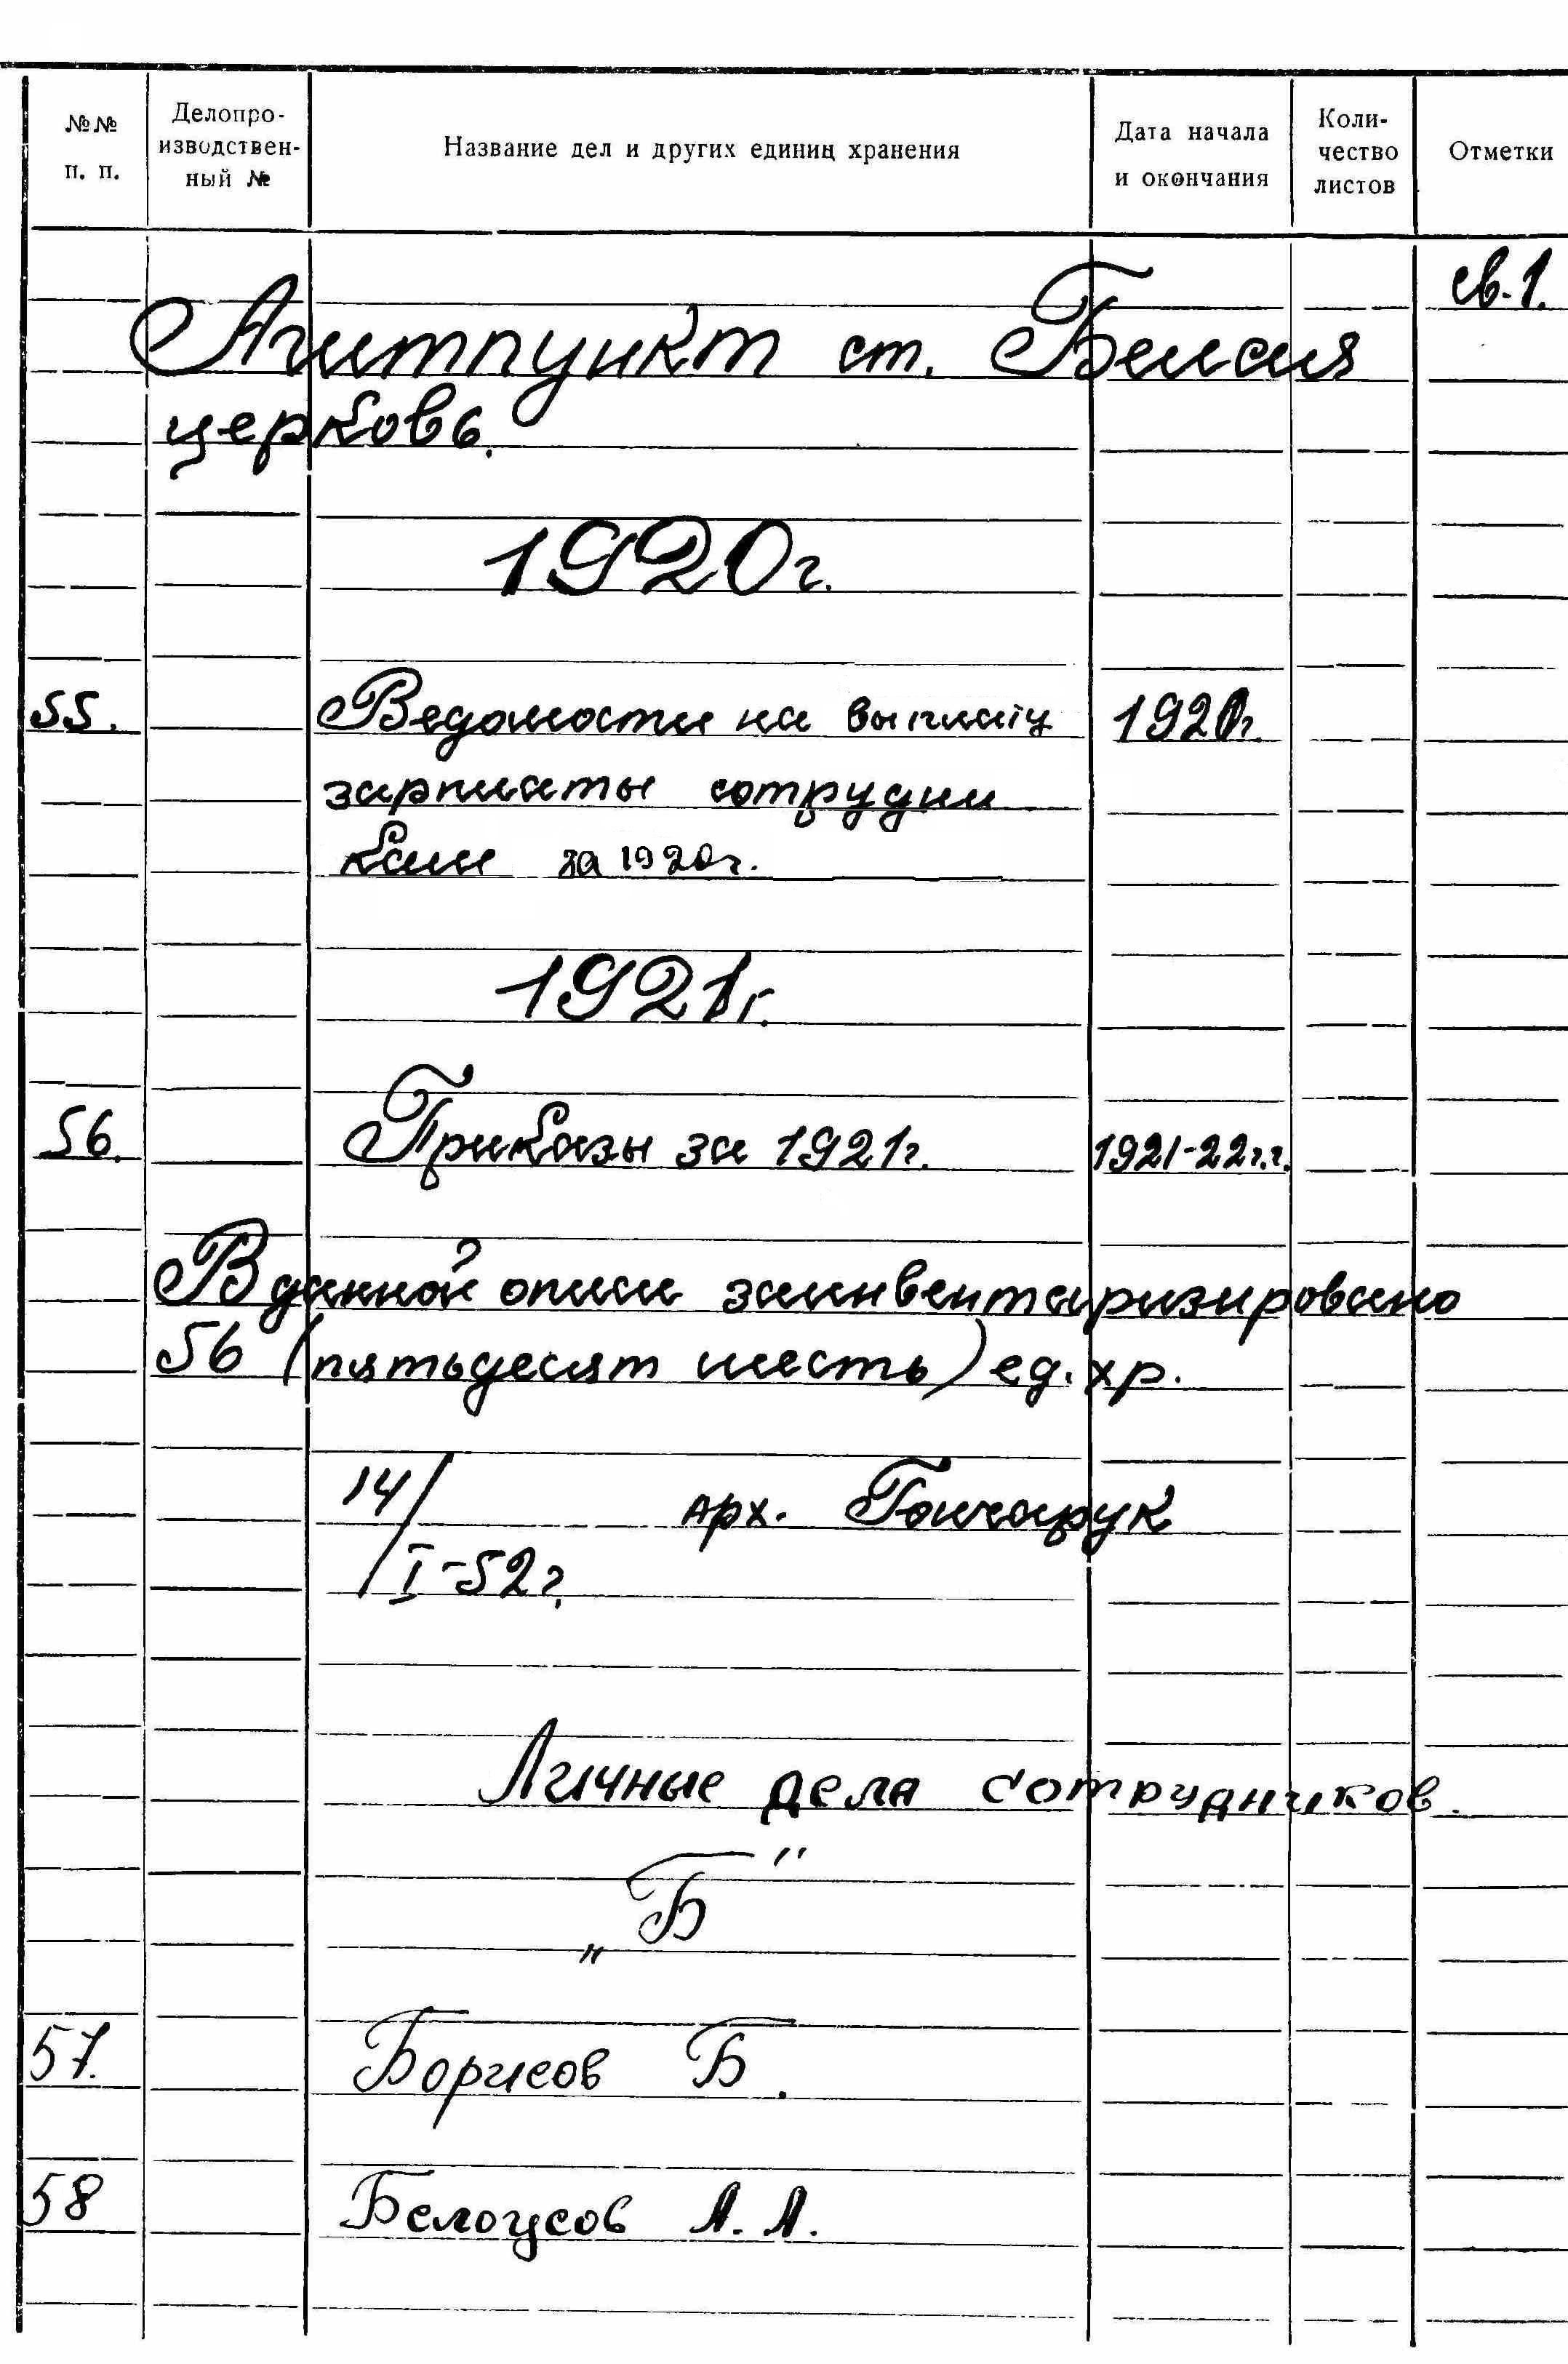 №№ п. п.
Делопро-
изводствен-
ный №
Название дел и других единиц хранения
Дата начала
и окончания
Коли-
чество
листов
Отметки
св. 1.
Агитпункт ст. Белая
церковь.
1920г.
55. Ведомости на выплату 1920г.
зарплаты сотрудни
кам за 1920г.
1921г.
56. Приказы за 1921г. 1921-22г.г.
В данной описи заинвентаризировано
56 (пятьдесят шесть) ед. хр.
14/I-52г. арх. Гончарук
Личные дела сотрудников.
„Б"
57. Борисов Б.
58 Белоусов А. А.